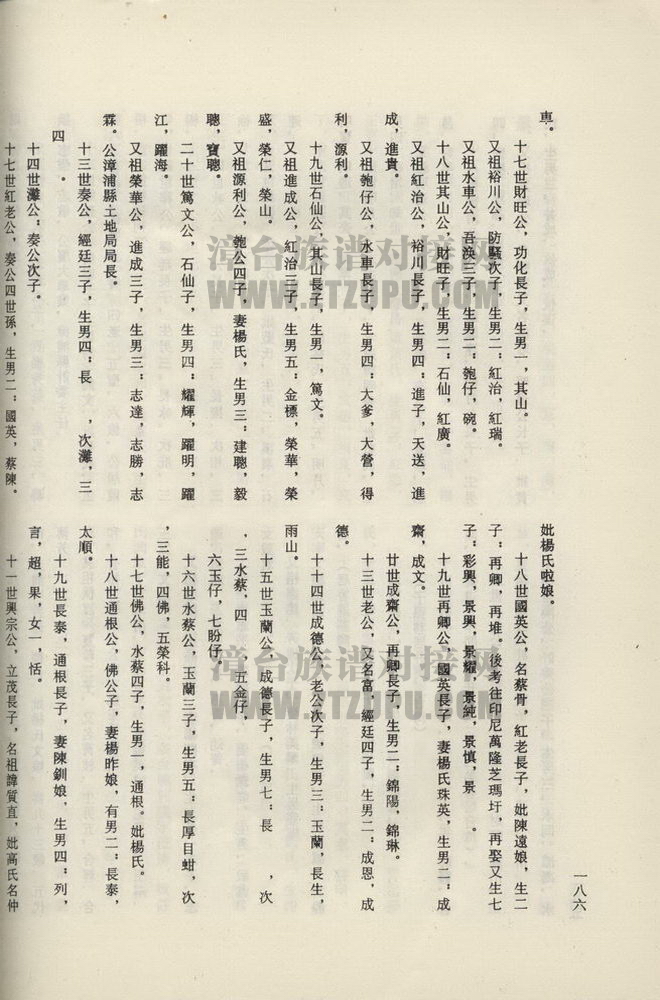 車。
十七世財旺公，功化長子，生男一，其山。
又祖裕川公，防騷次子，生男二：紅治，紅瑞。
又祖水車公，吾渙三子，生男二：匏仔，碗。
十八世其山公，財旺子，生男二：石仙，紅廣。
又祖紅治公，裕川長子，生男四：進子，天送，進
成，進貴。
又祖匏仔公，水車長子，生男四：大爹，大營，得
利，源利。
十九世石仙公，其山長子，生男一，篤文。
又祖進成公，紅治三子，生男五：金標，榮華，榮
盛，榮仁，榮山。
又祖源利公，匏公四子，妻楊氏，生男三：建聰，毅
聰，寶聰。
二十世篤文公，石仙子，生男四：耀輝，躍明，躍
江，躍海。
又祖榮華公，進成三子，生男三：志達，志勝，志
霖。公漳浦縣土地局局長。
十三世奏公，經廷三子，生男四：長　，次灘，三
四　．
十四世灘公：奏公次子。
十七世紅老公，奏公四世孫，生男二：國英，蔡陳。
妣楊氏啦娘。
十八世國英公，名蔡骨，紅老長子，妣陳遠娘，生二
子：再卿，再堆。後考往印尼萬隆芝瑪圩，再娶又生七
子：彩興，景興，景耀，景純，景慎，景　。
十九世再卿公，國英長子，妻楊氏珠英，生男二：成
齋，成文。
廿世成齋公，再卿長子，生男二：錦陽，錦琳。
十三世老公，又名富，經廷四子，生男二：成恩，成
德。
十十四世成德公，老公次子，生男三：玉蘭，長生，
雨山。
十五世玉蘭公，成德長子，生男七：長　，次
．三水蔡，四　五金仔，
六玉仔，七盼仔。
十六世水蔡公，玉蘭三子，生男五：長厚目蚶，次
，三能，四佛，五榮科。
十七世佛公，水蔡四子，生男一，通根。妣楊氏。
十八世通根公，佛公子，妻楊昨娘，有男二：長泰，
太順。
十九世長泰，通根長子，妻陳釧娘，生男四：列，
言，超，果，女一，恬。
十一世興宗公，立茂長子，名祖諱質直，妣高氏名仲
一八六
漳台族谱对接网
WWW.ZTZUPU.COM
漳台族谱对接网
WWW.ZTZUPU.COM